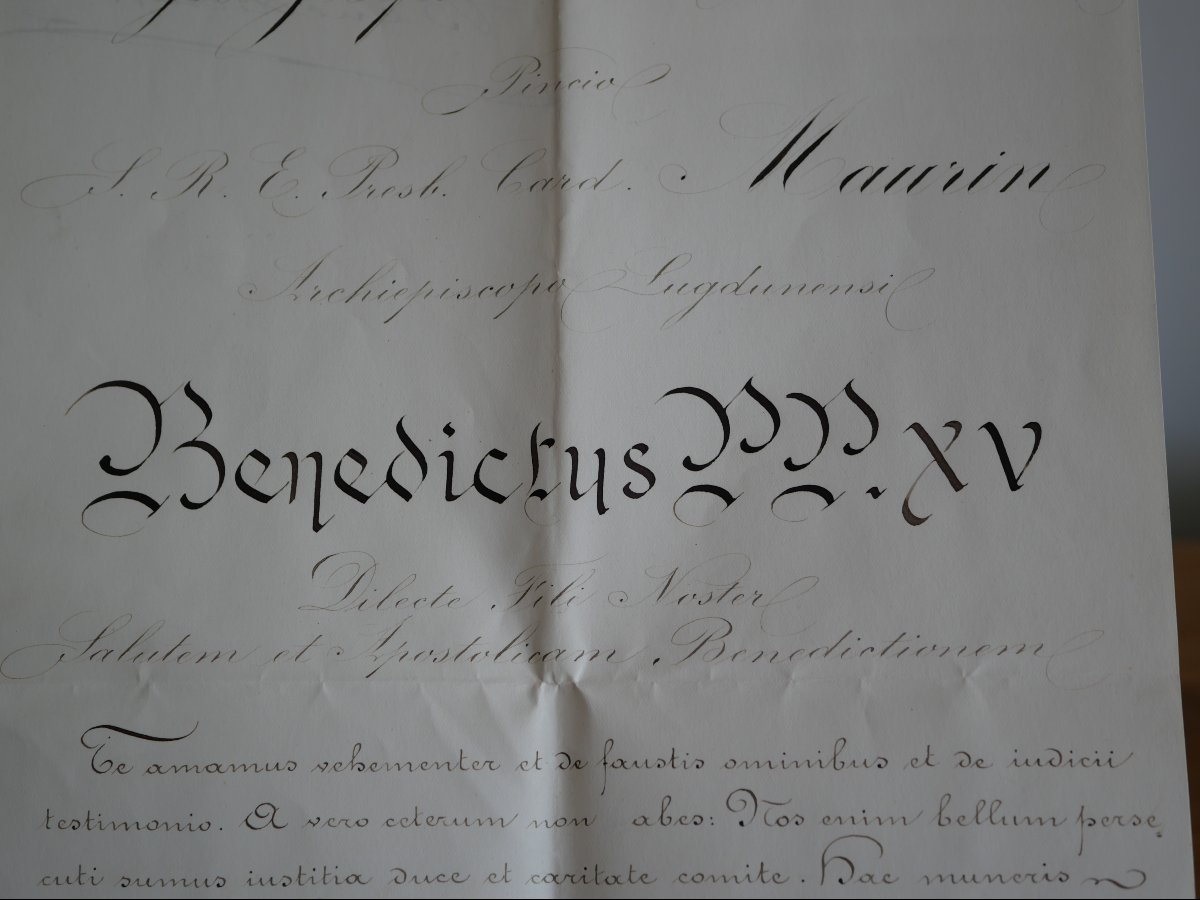 Pincio
S. R. E. Presb. Card. Maurin
Archiepiscopo Lugdunensi
Benedictus PP. XV
Dilecte Fili Noster
Salutem et Apostolicam Benedictionem
Te amamus vehementer et de faustis ominibus et de iudicii
testimonio. A vero ceterum non abes: Nos enim bellum perse
cuti sumus iustitia duce et caritate comite. Hac muneris